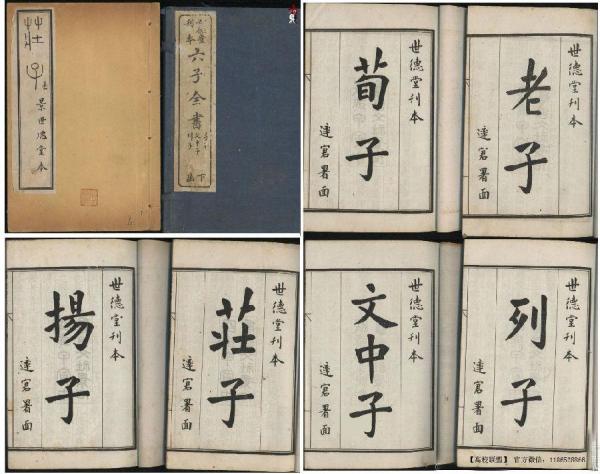 莊子
景世德堂本
六子全書
下函
世德堂刊本
荀子
達窩署面
世德堂刊本
老子
達窩署面
世德堂刊本
揚子
達窩署面
世德堂刊本
莊子
達窩署面
世德堂刊本
文中子
達窩署面
世德堂刊本
列子
達窩署面
【高校联盟】 官方微信：1186528866